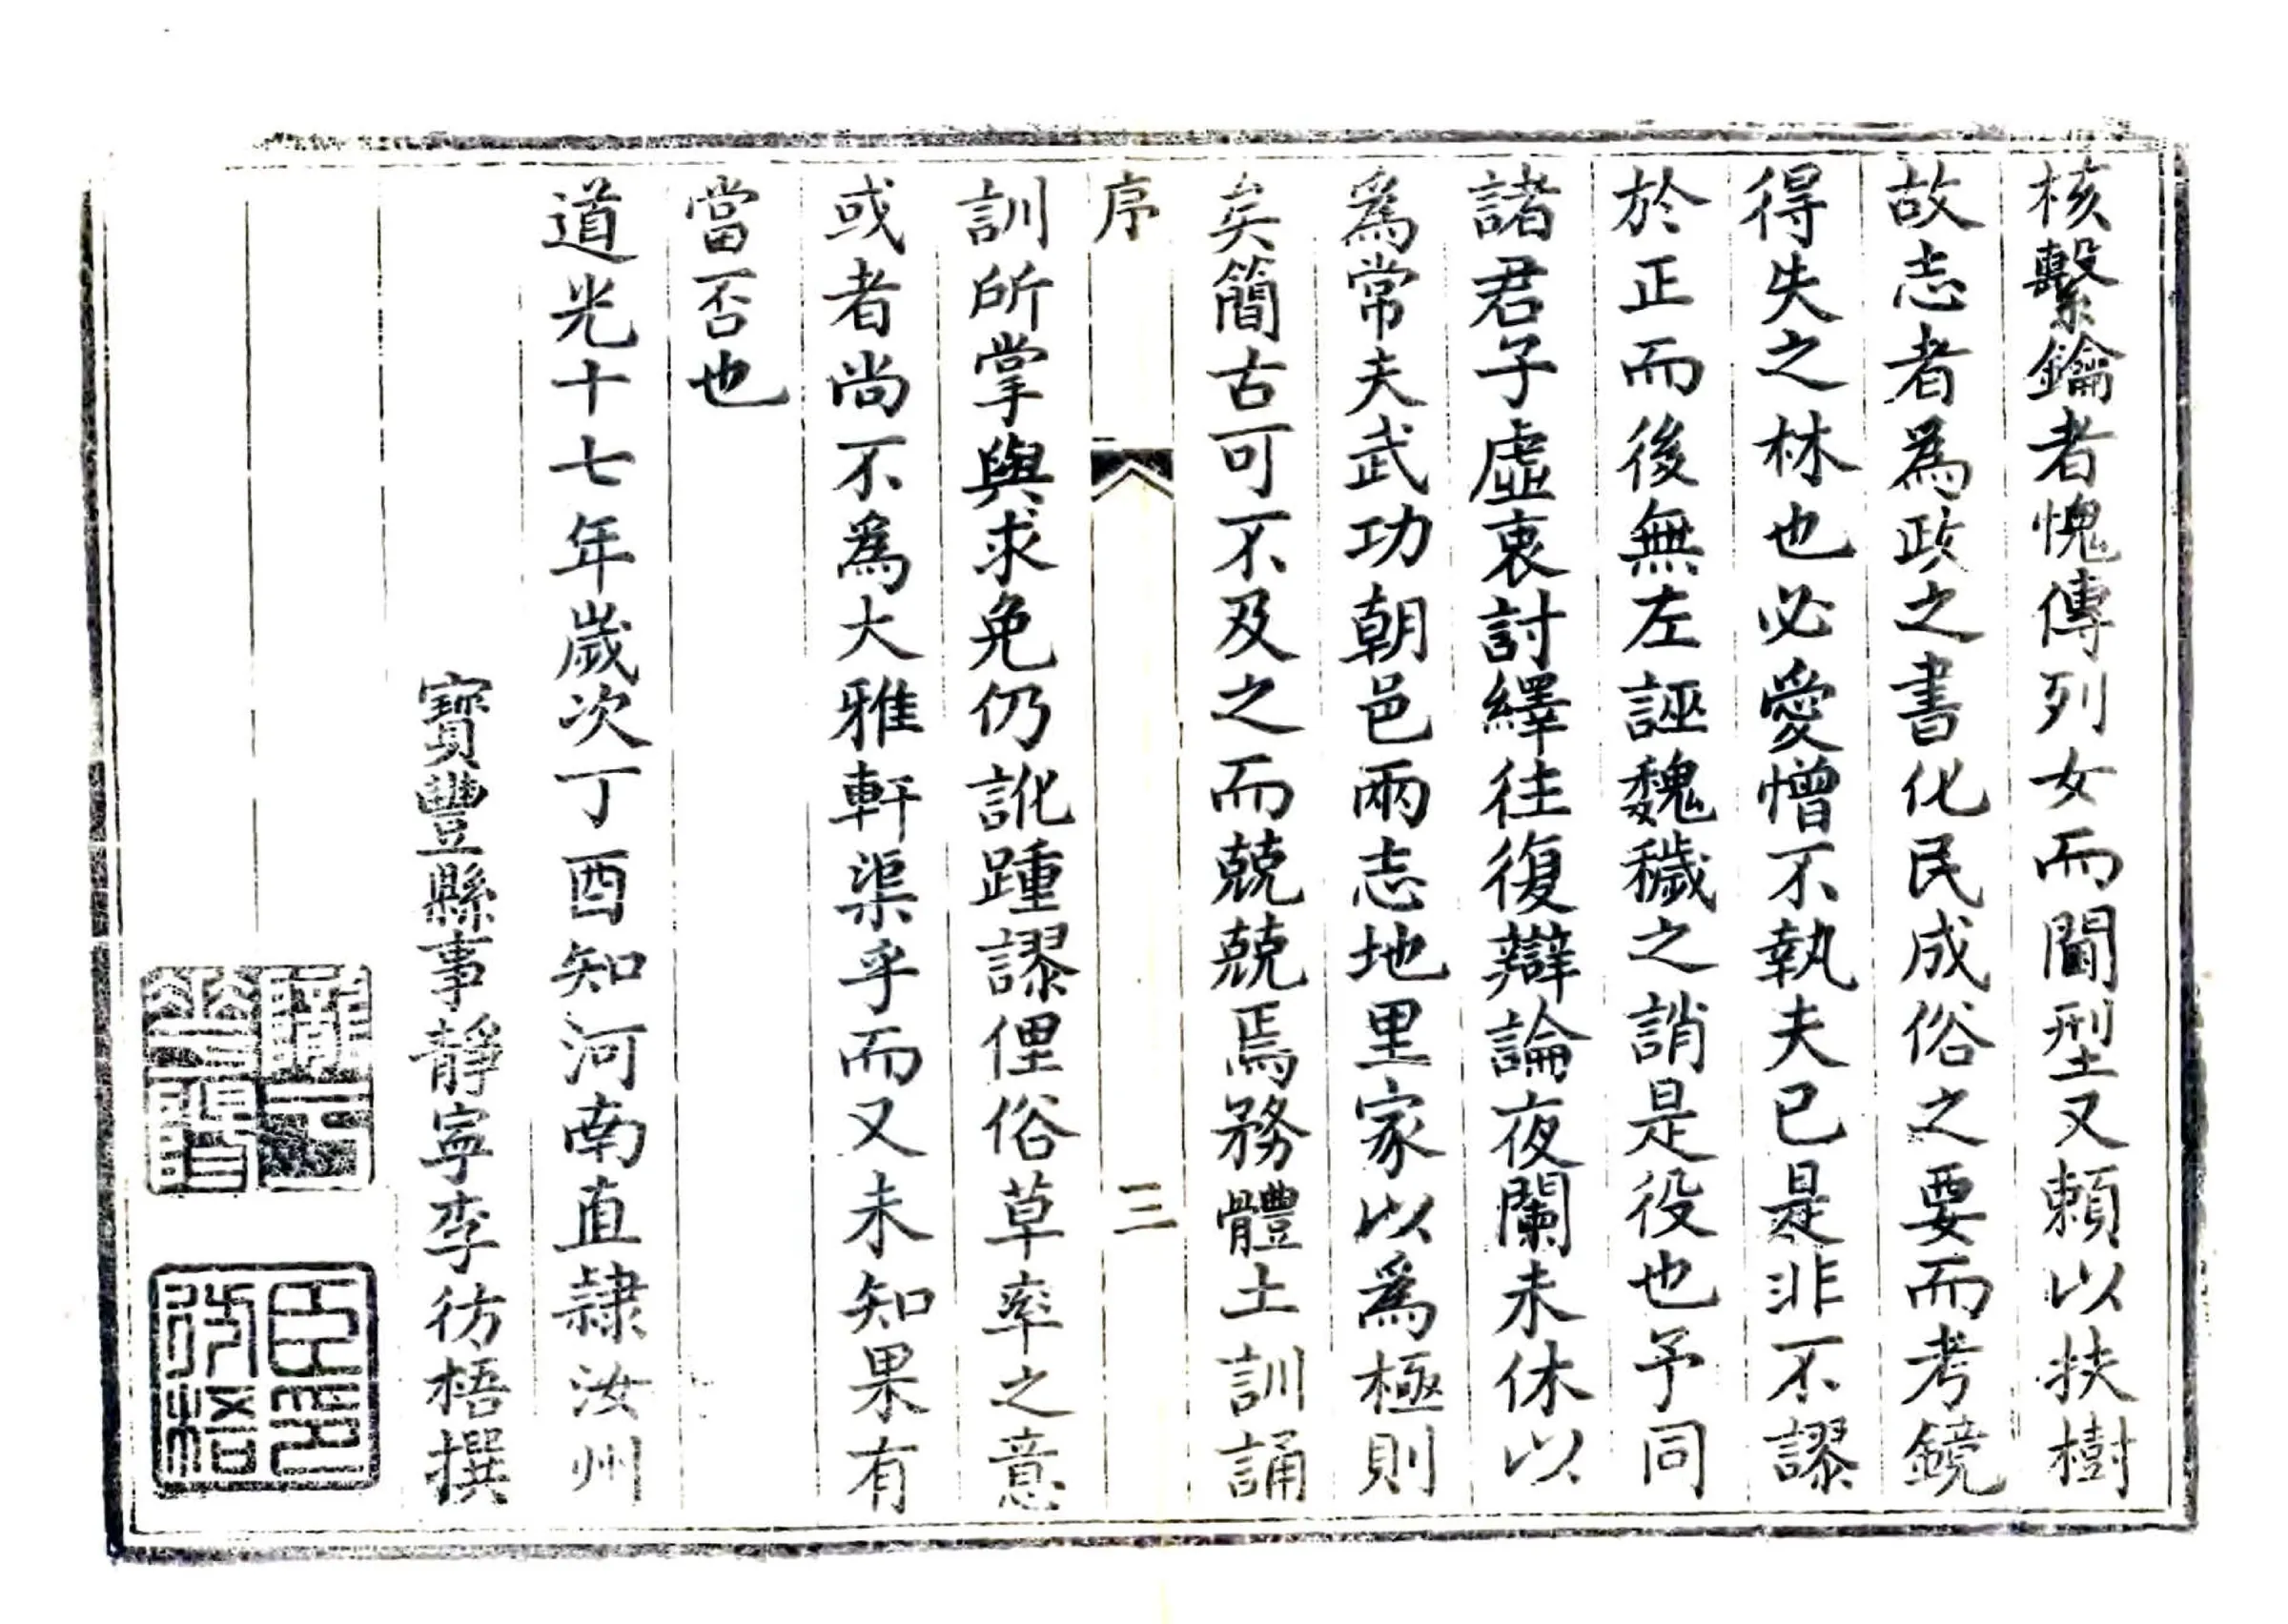 核繫鑰者愧傳列女而閫型又賴以扶樹
故志者為政之書化民成俗之要而考鏡
得失之林也必愛憎不執夫已是非不謬
於正而後無左誣魏穢之誚是役也予同
諸君子虛衷討繹往復辯論夜闌未休以
為常夫武功朝邑兩志地里家以為極則
矣簡古可不及之而兢兢焉務體土訓誦
序
三
訓所掌與求免仍訛踵謬俚俗草率之意
或者尚不為大雅軒渠乎而又未知果有
當否也
道光十七年歲次丁酉知河南直隸汝州
寶豐縣事靜寧李彷梧撰
臣印彷梧